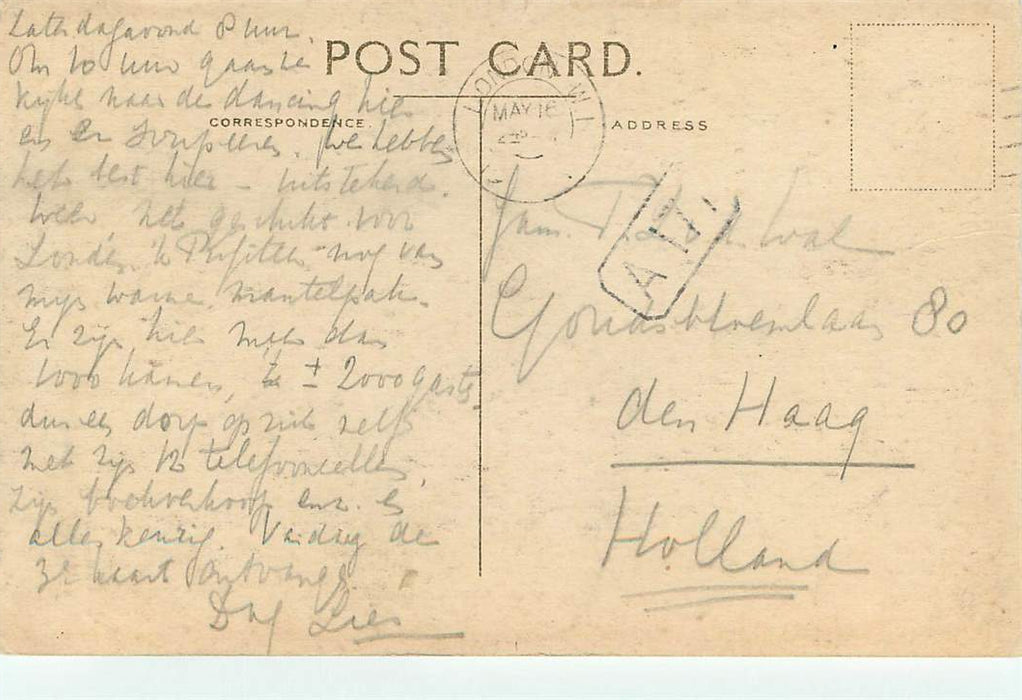 Zaterdagavond 8 uur.
Om 10 uur gaan we
kijke naar de dancing hier
en er soupeeren. We hebben
het best hier – uitstekend.
weer, net geschikt voor
Londen. & Profiteer nog van
mijn warme mantelpak.
Er zijn hier meer dan
1000 kamers, ± 2000 gasten
dus een dorp op zich zelf
met zijn 12 telefooncellen,
zijn boekverkoop enz. en
alles keurig. Vandaag de
3e kaart ontvangen.
Dag Lies
POST CARD.
CORRESPONDENCE
ADDRESS
LONDON W.1
MAY 16
Fam. v.d. Wal
Goudsbloemlaan 80
den Haag
Holland